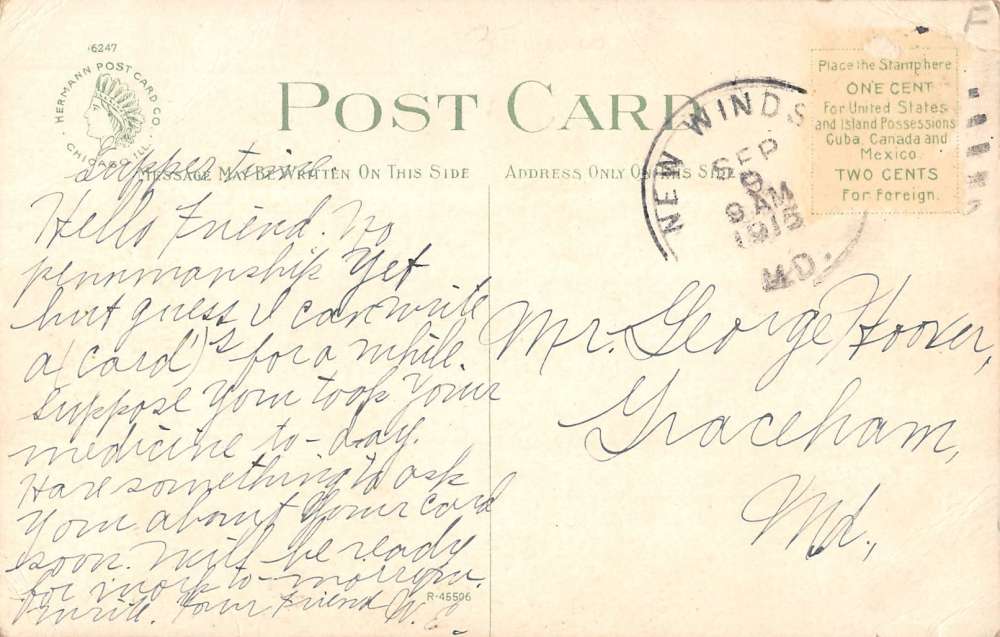 6247
HERMANN POST CARD CO.
CHICAGO ILL.
POST CARD
Supper time.
MESSAGE MAY BE WRITTEN ON THIS SIDE
ADDRESS ONLY ON THIS SIDE
Hello Friend. No
pennmanship yet
but guess I can write
a (card)'s for a while.
Suppose you took your
medicine to-day.
Have something to ask
you about your card
soon. Will be ready
for work to-morrow.
Write. Your Friend W. E.
R-45596
NEW WINDS
SEP
9 AM
1915
MD.
Place the Stamp here
ONE CENT
For United States
and Island Possessions
Cuba, Canada and
Mexico.
TWO CENTS
For Foreign.
F
Mr. George Hoover,
Graceham,
Md.,